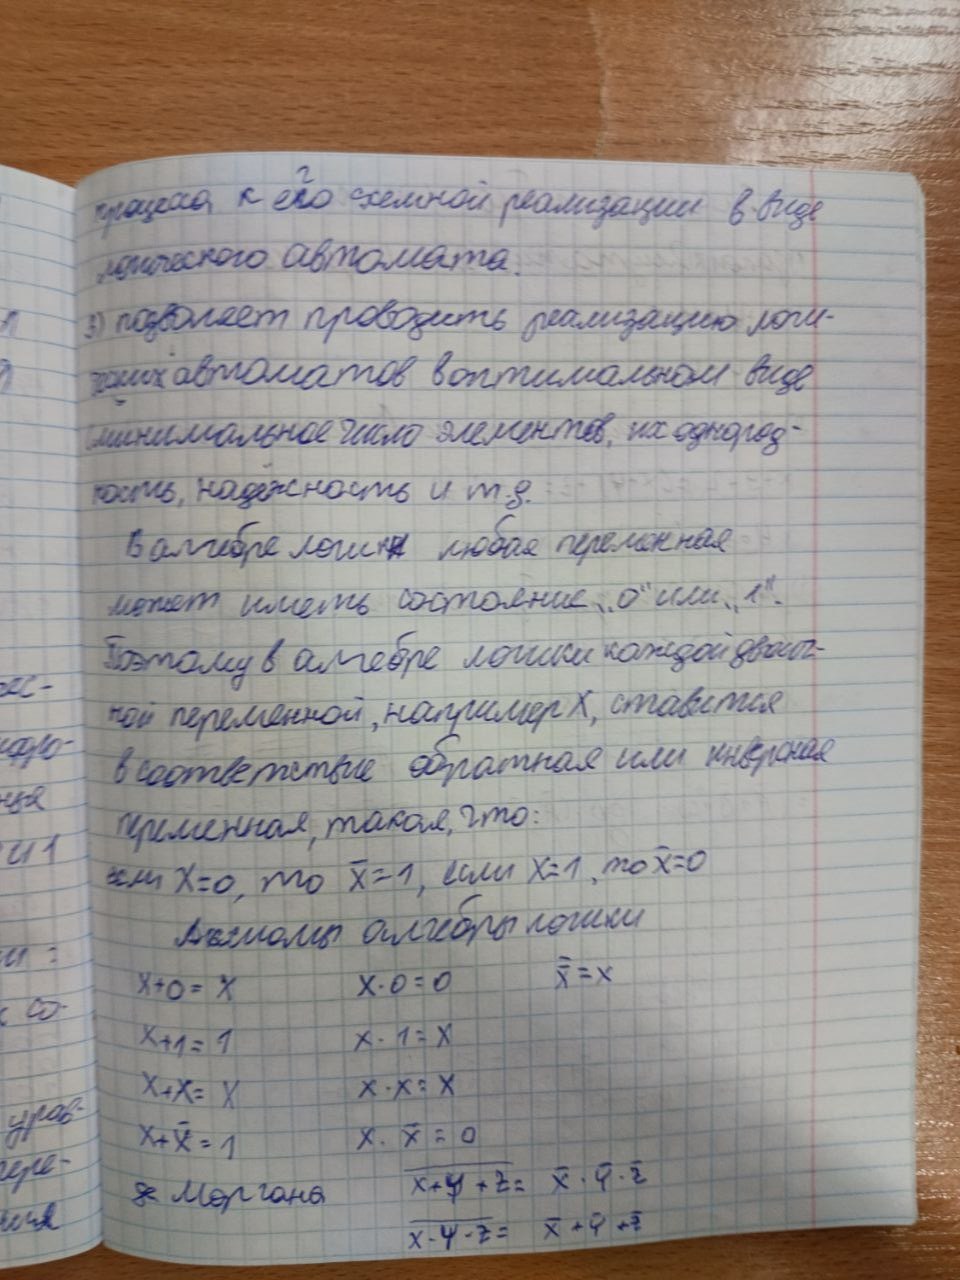 процесса к его схемной реализации в виде
логического автомата.
3) позволяет проводить реализацию логи-
ческих автоматов в оптимальном виде
(минимальное число элементов, их однород-
ность, надёжность и т.д.
В алгебре логики любая переменная
может иметь состояние „0" или „1".
Поэтому в алгебре логики каждой двоич-
ной переменной, например X, ставится
в соответствие обратная или инверсная
переменная, такая, что:
если X=0, то x̄=1, если X=1, то x̄=0
Аксиомы алгебры логики
x+0=x x·0=0 x̿=x
x+1=1 x·1=x
x+x=x x·x=x
x+x̄=1 x·x̄=0
Де Моргана x̅+̅y̅+̅z̅= x̄·ȳ·z̄
x̅·̅y̅·̅z̅= x̄+ȳ+z̄
я
рас-
нця
и 1
ми :
с со-
урав-
пере-